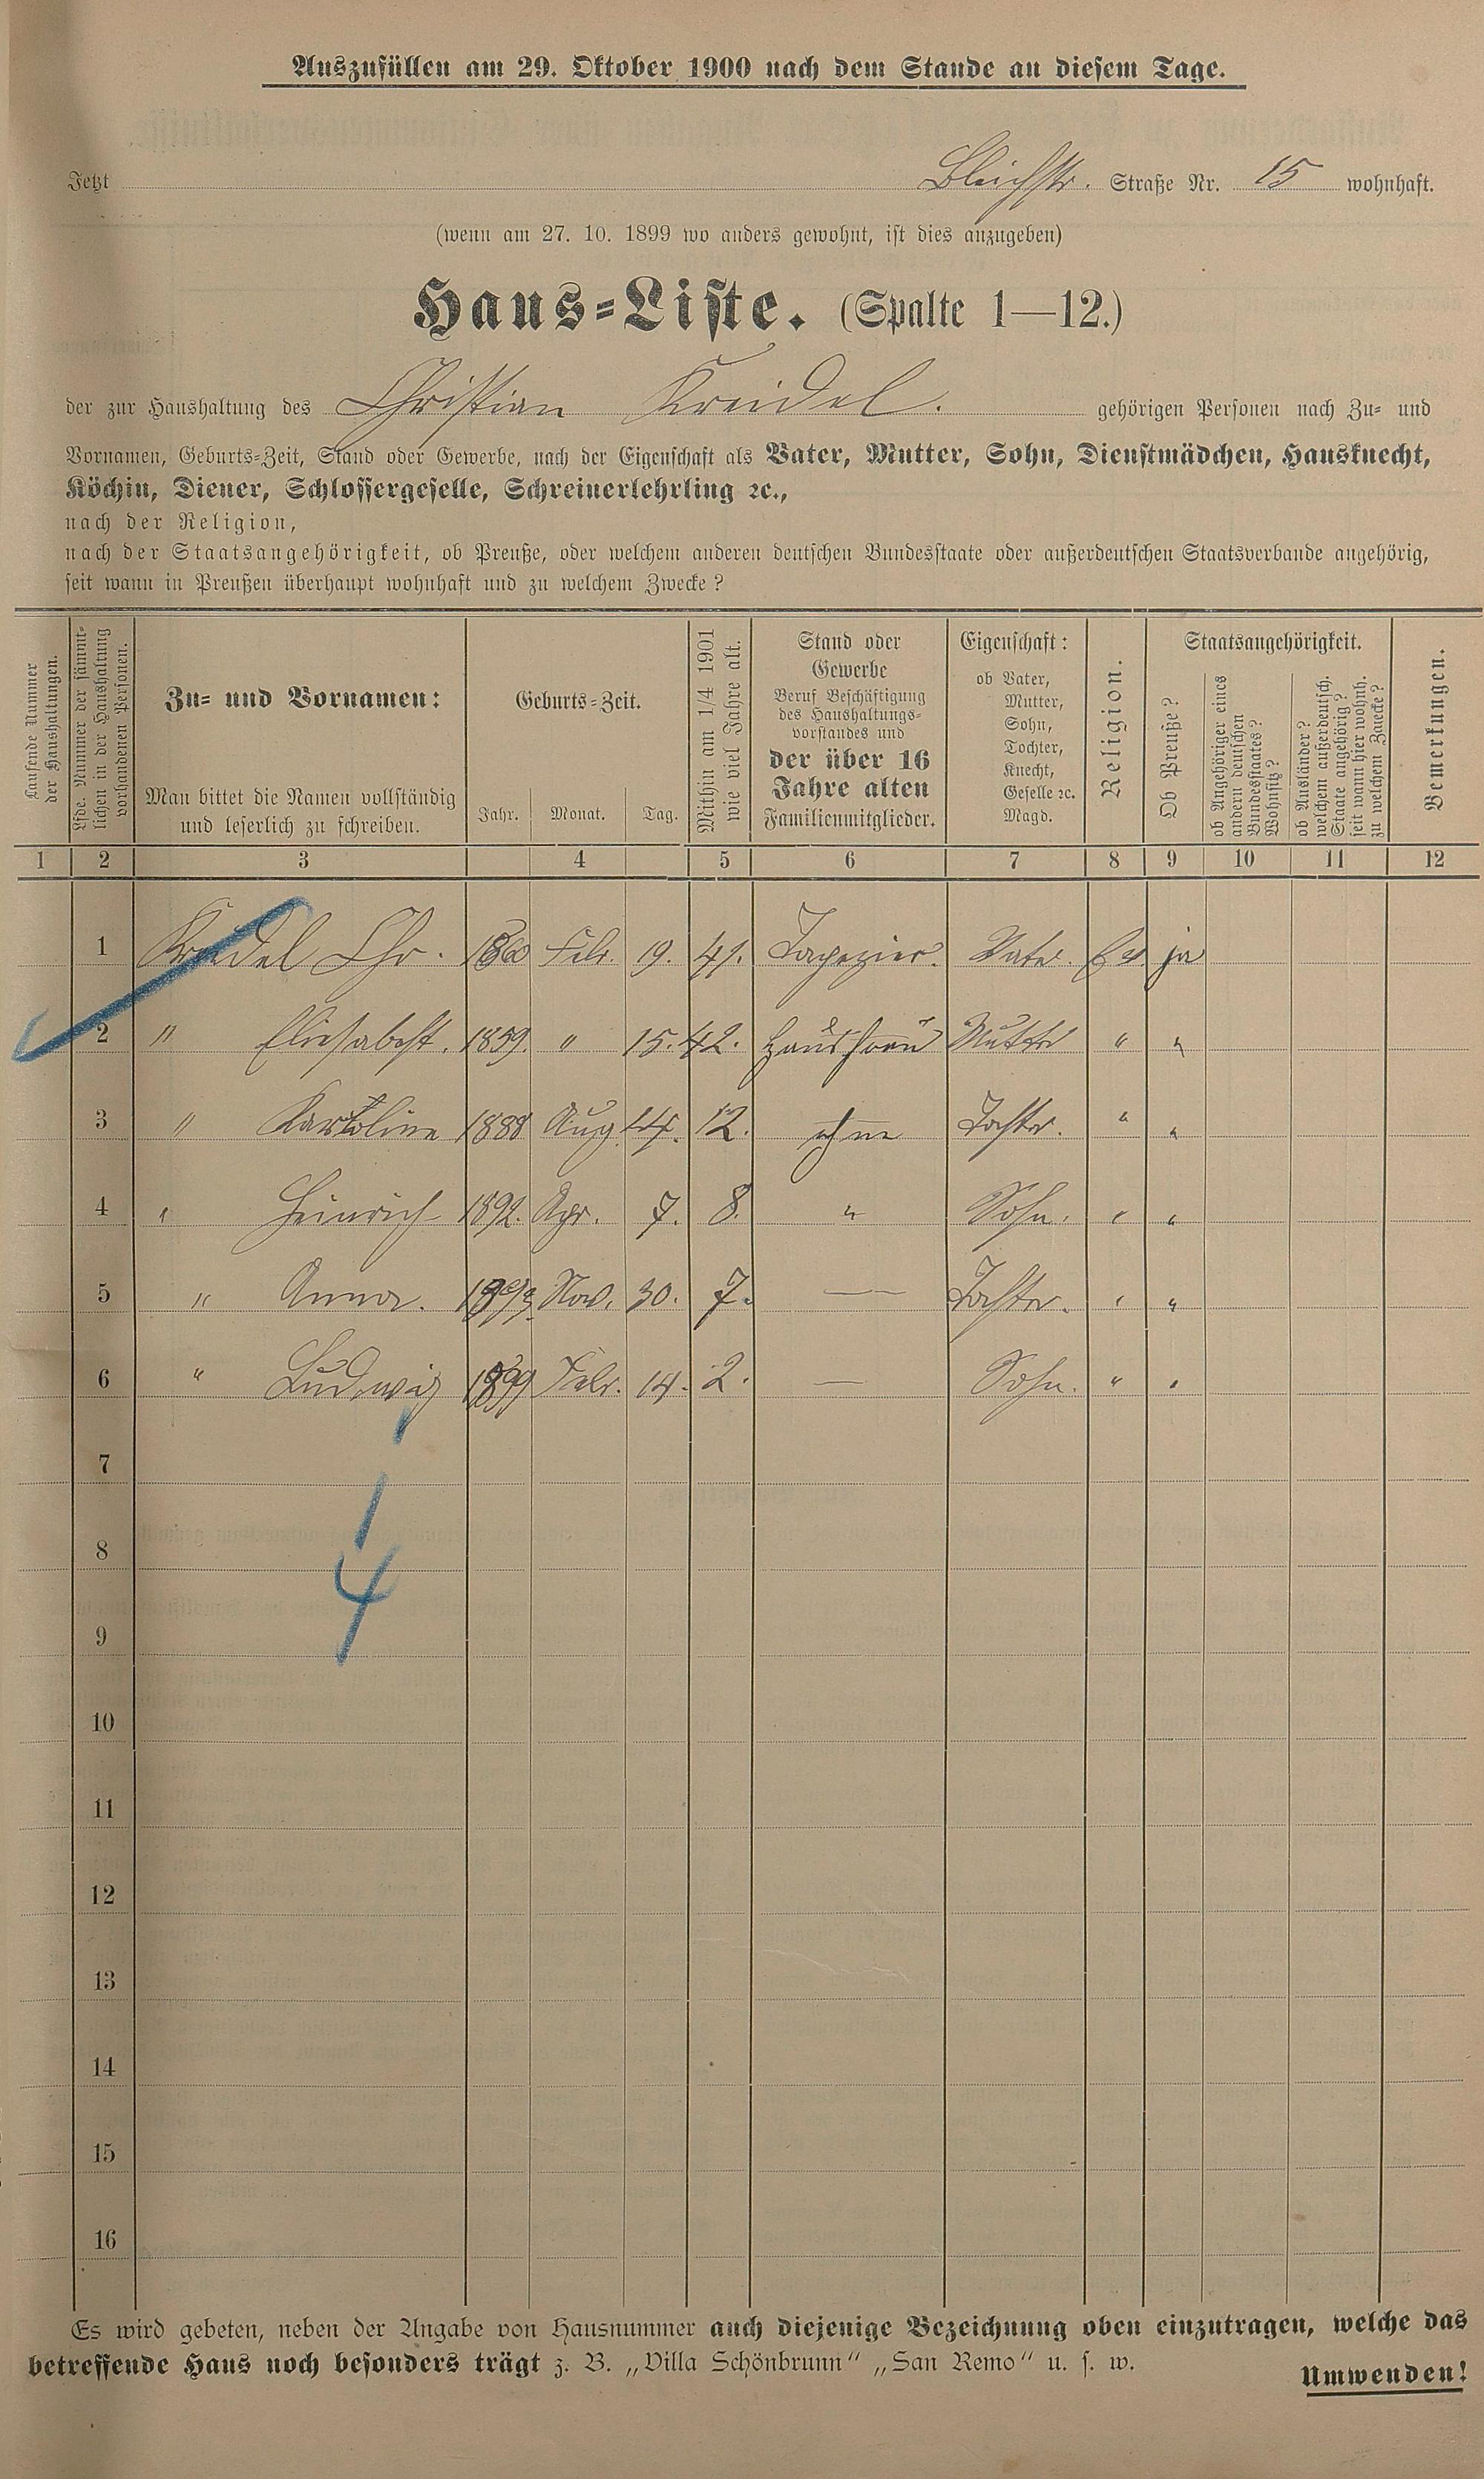 Auszufüllen am 29. Oktober 1900 nach dem Stande an diesem Tage.
Jetzt Bleichstr. Straße Nr. 15 wohnhaft.
(wenn am 27. 10. 1899 wo anders gewohnt, ist dies anzugeben)
Haus-Liste. (Spalte 1—12.)
der zur Haushaltung des Christian Kreidel. gehörigen Personen nach Zu- und
Vornamen, Geburts-Zeit, Stand oder Gewerbe, nach der Eigenschaft als Vater, Mutter, Sohn, Dienstmädchen, Hausknecht,
Köchin, Diener, Schlossergeselle, Schreinerlehrling ꝛc.,
nach der Religion,
nach der Staatsangehörigkeit, ob Preuße, oder welchem anderen deutschen Bundesstaate oder außerdeutschen Staatsverbande angehörig,
seit wann in Preußen überhaupt wohnhaft und zu welchem Zwecke?
Laufende Nummer der Haushaltungen.
Lfde. Nummer der sämmtlichen in der Haushaltung vorhandenen Personen.
Zu- und Vornamen:
Man bittet die Namen vollständig
und leserlich zu schreiben.
Geburts-Zeit.
Jahr. Monat. Tag.
Mithin am 1/4 1901
wie viel Jahre alt.
Stand oder
Gewerbe
Beruf Beschäftigung
des Haushaltungs-
vorstandes und
der über 16
Jahre alten
Familienmitglieder.
Eigenschaft:
ob Vater,
Mutter,
Sohn,
Tochter,
Knecht,
Geselle ꝛc.
Magd.
Religion.
Staatsangehörigkeit.
Ob Preuße?
ob Angehöriger eines
andern deutschen
Bundesstaates?
Wohnsitz?
ob Ausländer?
welchem außerdeutsch.
Staate angehörig?
seit wann hier wohnh.
zu welchem Zwecke?
Bemerkungen.
1 2 3 4 5 6 7 8 9 10 11 12
1 Kreidel Chr. 1860 Febr. 19. 41. Tapezier. Vater. Ev ja
2 " Eliesabeht. 1859. " 15. 42. Hausfrau Mutter " "
3 " Karoline 1888 Aug. 14. 12. ohne Tochter. " "
4 " Heinrich 1892. Apr. 7. 8. " Sohn. " "
5 " Anna. 1893 Nov. 30. 7. — Tochter. " "
6 " Ludwig 1899 Febr. 14. 2. — Sohn. " "
7
8
4
9
10
11
12
13
14
15
16
Es wird gebeten, neben der Angabe von Hausnummer auch diejenige Bezeichnung oben einzutragen, welche das
betreffende Haus noch besonders trägt z. B. „Villa Schönbrunn“ „San Remo“ u. s. w.
Umwenden!